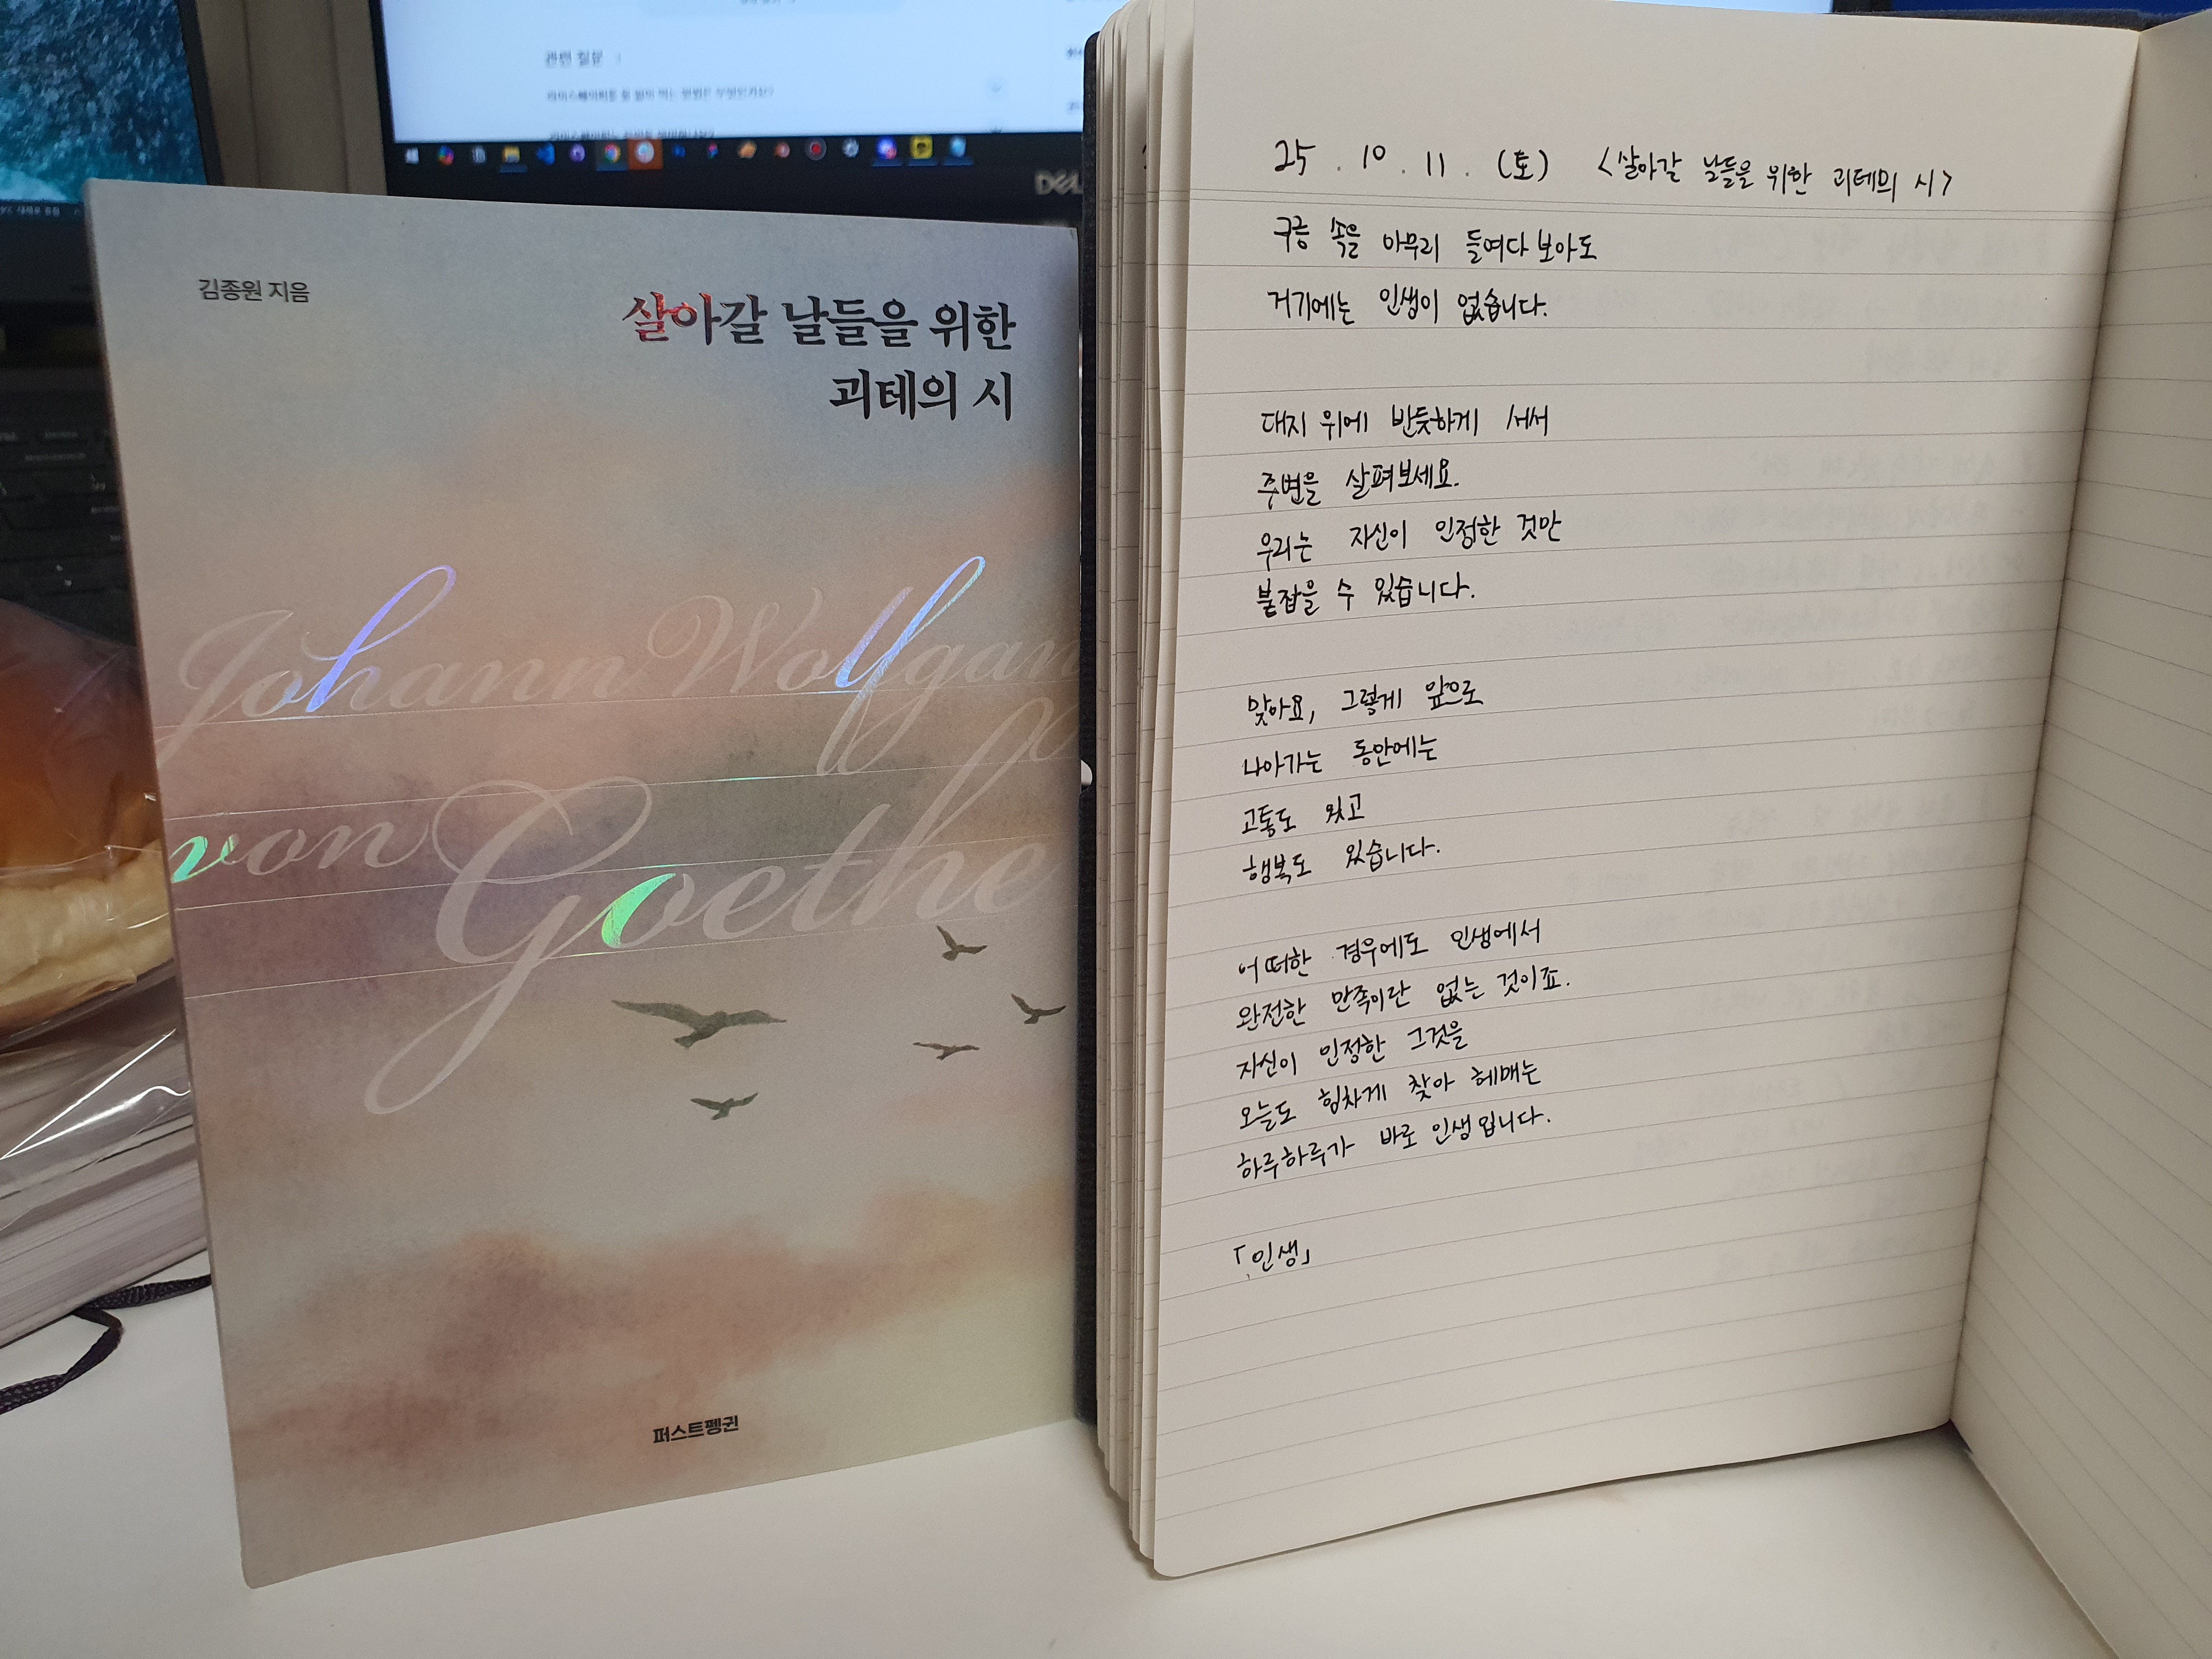 관련 질문
DELL
김종원 지음
살아갈 날들을 위한
괴테의 시
Johann Wolfgang
von Goethe
퍼스트펭귄
25. 10. 11. (토) <살아갈 날들을 위한 괴테의 시>
구름 속을 아무리 들여다보아도
거기에는 인생이 없습니다.
대지 위에 반듯하게 서서
주변을 살펴보세요.
우리는 자신이 인정한 것만
붙잡을 수 있습니다.
맞아요, 그렇게 앞으로
나아가는 동안에는
고통도 있고
행복도 있습니다.
어떠한 경우에도 인생에서
완전한 만족이란 없는 것이죠.
자신이 인정한 그것을
오늘도 힘차게 찾아 헤매는
하루하루가 바로 인생입니다.
「인생」